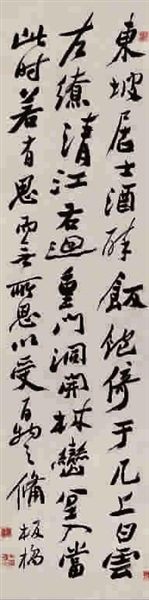 東坡居士酒醉飯飽倚于几上白雲
左繚清江右迴重門洞開林巒坌入當
此時若有思而無所思以受百物之備 板橋